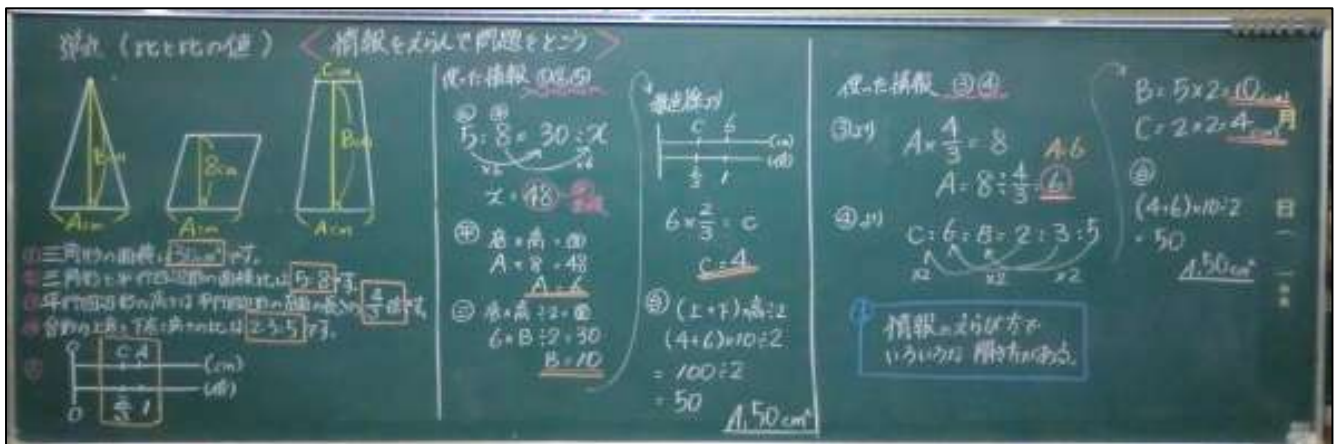 (比と比の値)
情報をえらんで問題をとこう
Ccm
Bcm
8cm
Bcm
Acm
Acm
Acm
①三角形の面積は30cm²です。
②三角形と平行四辺形の面積比は5:8です。
③平行四辺形の高さは平行四辺形の底辺の長さの4/3倍です。
④台形の上底と下底と高さの比は2:3:5です。
⑤
0 C A (cm)
0 2/3 1 (倍)
使った情報 ①②⑤
5:8=30:x
×6 ×6
x=48
㊥ 底×高=面
A×8=48
A=6
㊂ 底×高÷2=面
6×B÷2=30
B=10
C 6 (cm)
2/3 1 (倍)
6×2/3=C
C=4
㊅ (上+下)×高÷2
(4+6)×10÷2
=100÷2
=50
A.50cm²
使った情報 ③④
③より A×4/3=8
A=8÷4/3=6
A.6
④より C:6:B=2:3:5
×2 ×2 ×2
B=5×2=10(cm)
C=2×2=4(cm)
(4+6)×10÷2
=50
A.50cm²
情報のえらび方で
いろいろな解き方がある。
月
日